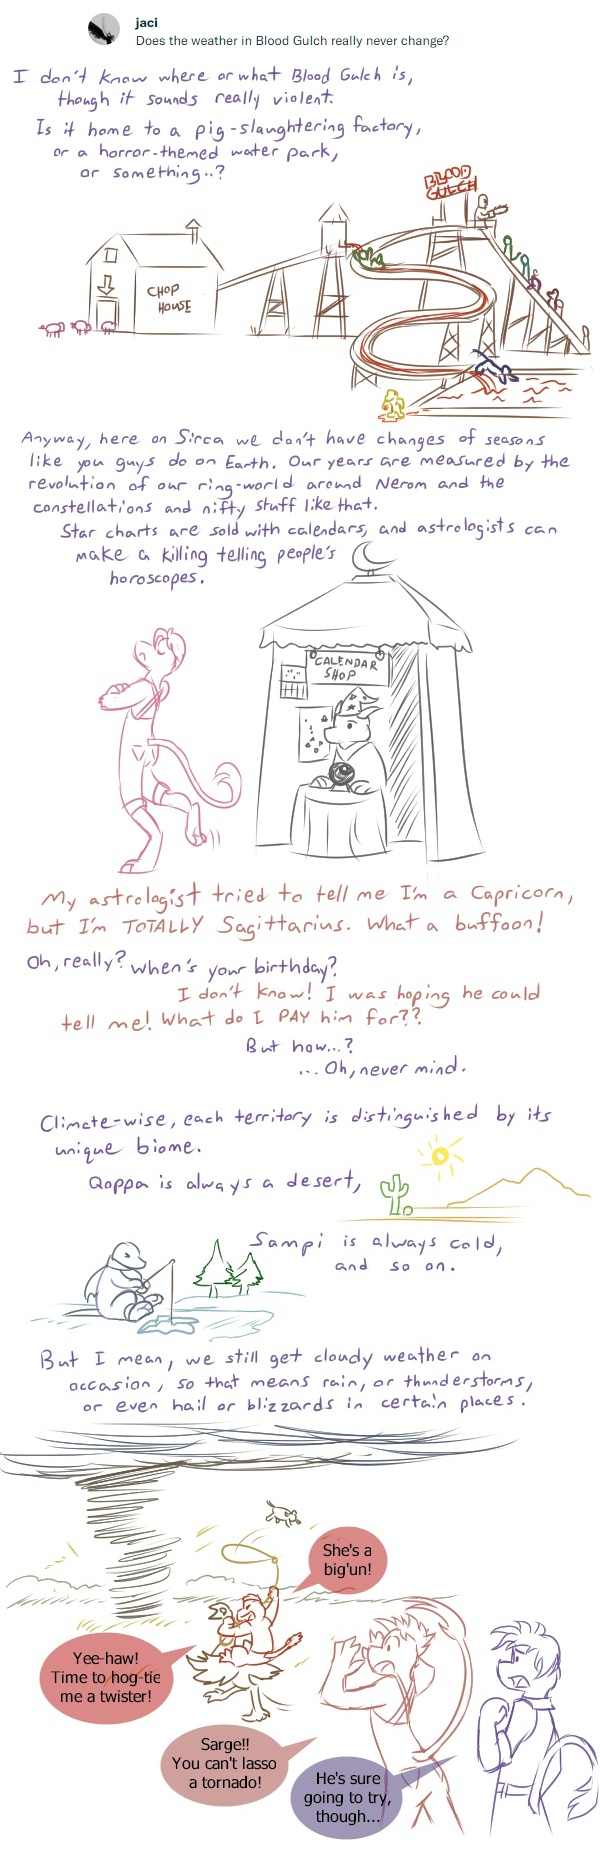 jaci
Does the weather in Blood Gulch really never change?
I don't know where or what Blood Gulch is,
though it sounds really violent.
Is it home to a pig-slaughtering factory,
or a horror-themed water park,
or something..?
BLOOD
GULCH
CHOP
HOUSE
Anyway, here on Sirca we don't have changes of seasons
like you guys do on Earth. Our years are measured by the
revolution of our ring-world around Nerom and the
constellations and nifty stuff like that.
Star charts are sold with calendars, and astrologists can
make a killing telling people's
horoscopes.
CALENDAR
SHOP
My astrologist tried to tell me I'm a Capricorn,
but I'm TOTALLY Sagittarius. What a buffoon!
Oh, really? When's your birthday?
I don't know! I was hoping he could
tell me! What do I PAY him for??
But how...?
...Oh, never mind.
Climate-wise, each territory is distinguished by its
unique biome.
Qoppa is always a desert,
Sampi is always cold,
and so on.
But I mean, we still get cloudy weather on
occasion, so that means rain, or thunderstorms,
or even hail or blizzards in certain places.
She's a
big'un!
Yee-haw!
Time to hog-tie
me a twister!
Sarge!!
You can't lasso
a tornado!
He's sure
going to try,
though...